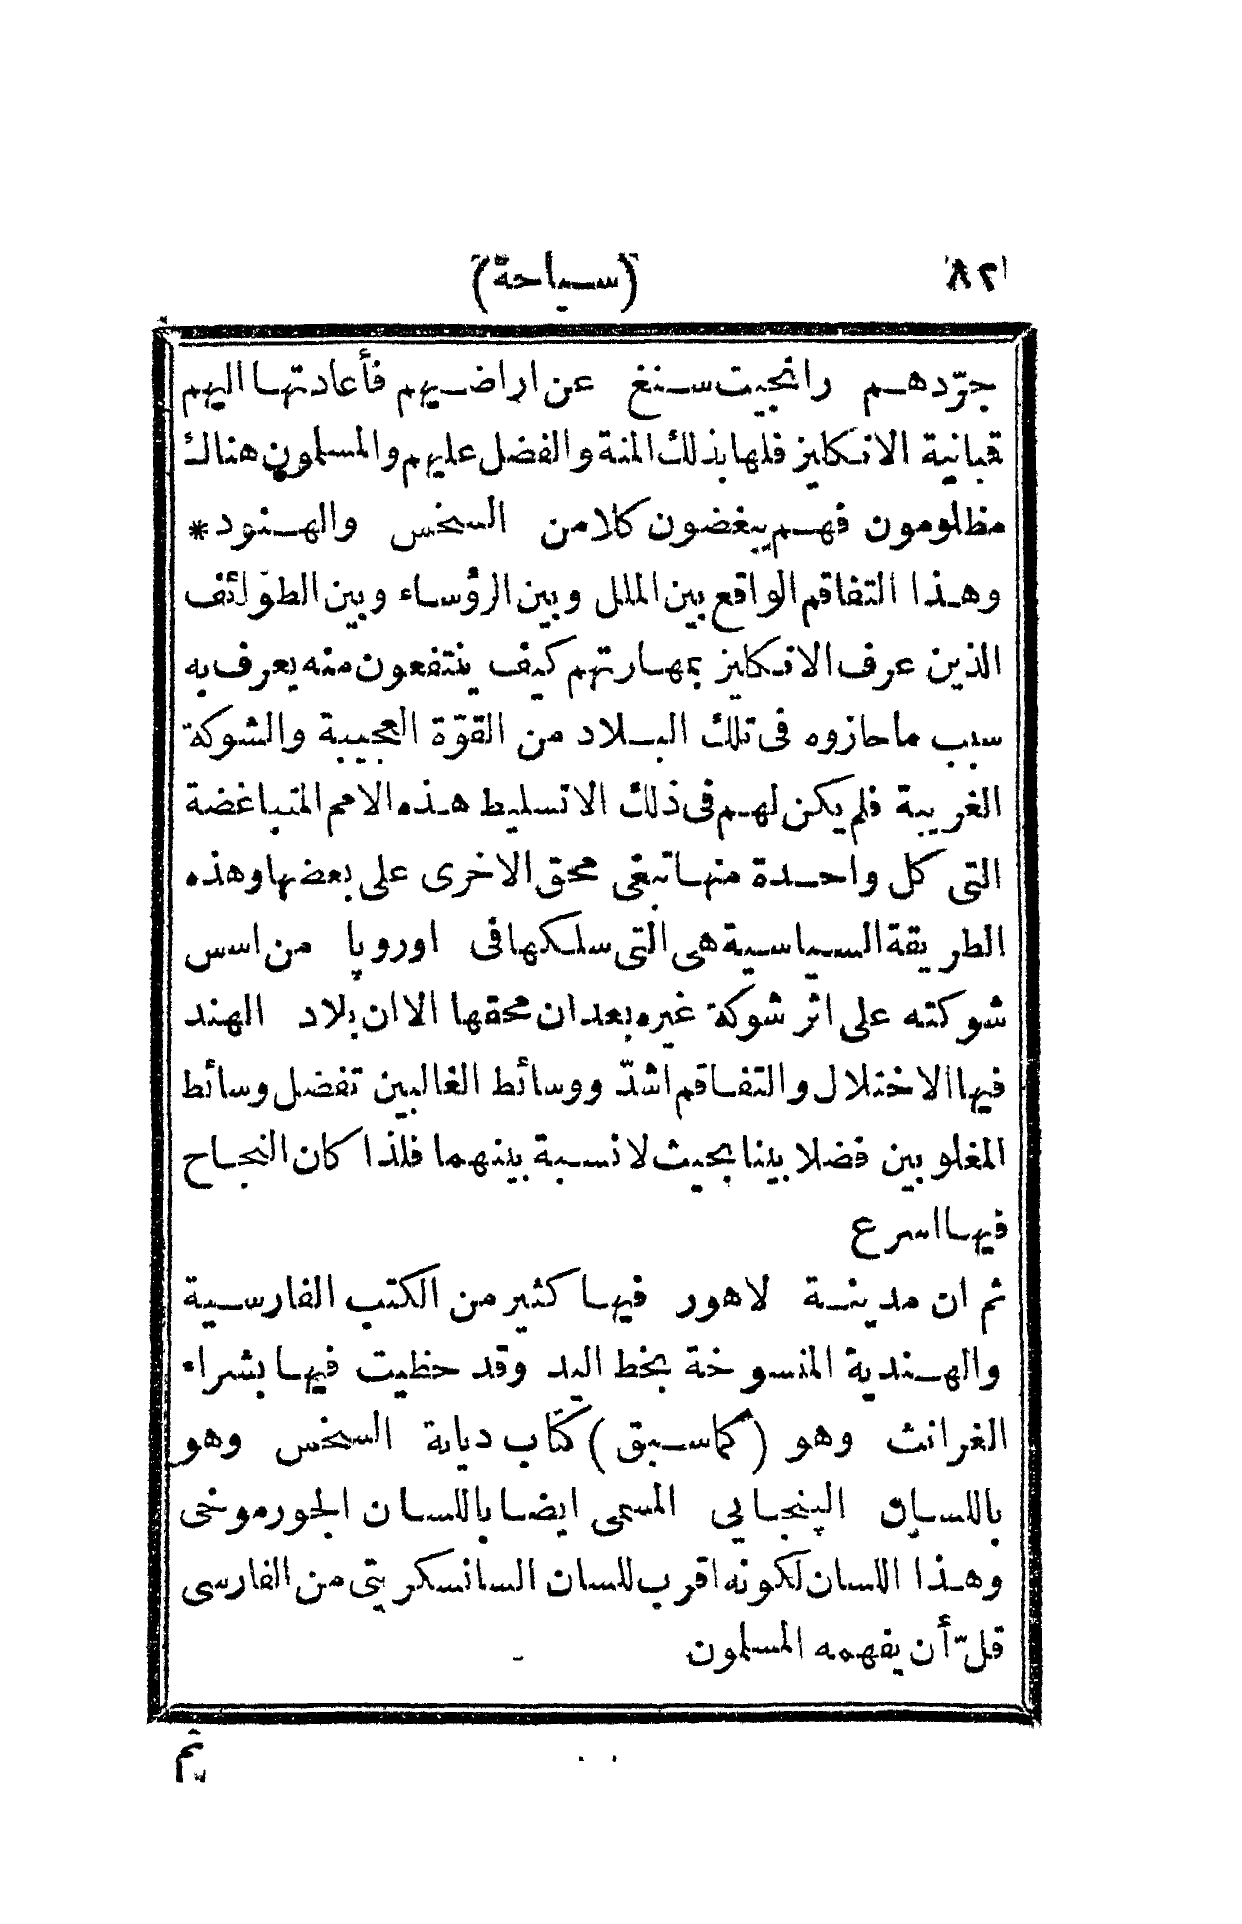 ٨٢ (سياحة)
جرّدهم رانجيت سنغ عن اراضيهم فأعادتها اليهم
قبانية الانكليز فلها بذلك المنة والفضل عليهم والمسلمون هناك
مظلومون فهم يبغضون كلا من السخس والهنود *
وهذا التفاقم الواقع بين الملل وبين الرؤساء وبين الطوّائف
الذين عرف الانكليز بمهارتهم كيف ينتفعون منه يعرف به
سبب ما حازوه فى تلك البلاد من القوّة العجيبة والشوكة
الغريبة فلم يكن لهم فى ذلك الا تسليط هذه الامم المتباغضة
التى كل واحدة منها تبغى محق الاخرى على بعضها وهذه
الطريقة السياسية هى التى سلكها فى اوروپا من اسس
شوكته على اثر شوكة غيره بعد ان محقها الا ان بلاد الهند
فيها الاختلال والتفاقم اشدّ ووسائط الغالبين تفضل وسائط
المغلوبين فضلا بينا بحيث لا نسبة بينهما فلذا كان النجاح
فيها اسرع
ثم ان مدينة لاهور فيها كثير من الكتب الفارسية
والهندية المنسوخة بخط اليد وقد حظيت فيها بشراء
الغرانث وهو (كما سبق) كتاب ديانة السخس وهو
باللسان الپنجابي المسمى ايضا باللسان الجورموخى
وهذا اللسان لكونه اقرب للسان السانسكريتى من الفارسى
قلّ أن يفهمه المسلمون
ثم